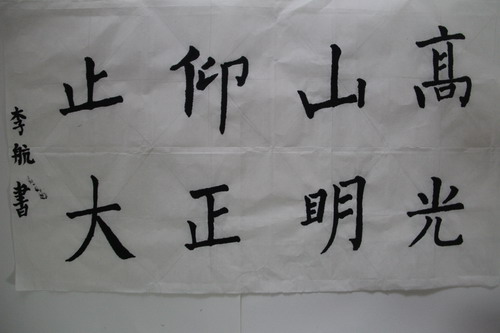 高山仰止
光明正大
李航書